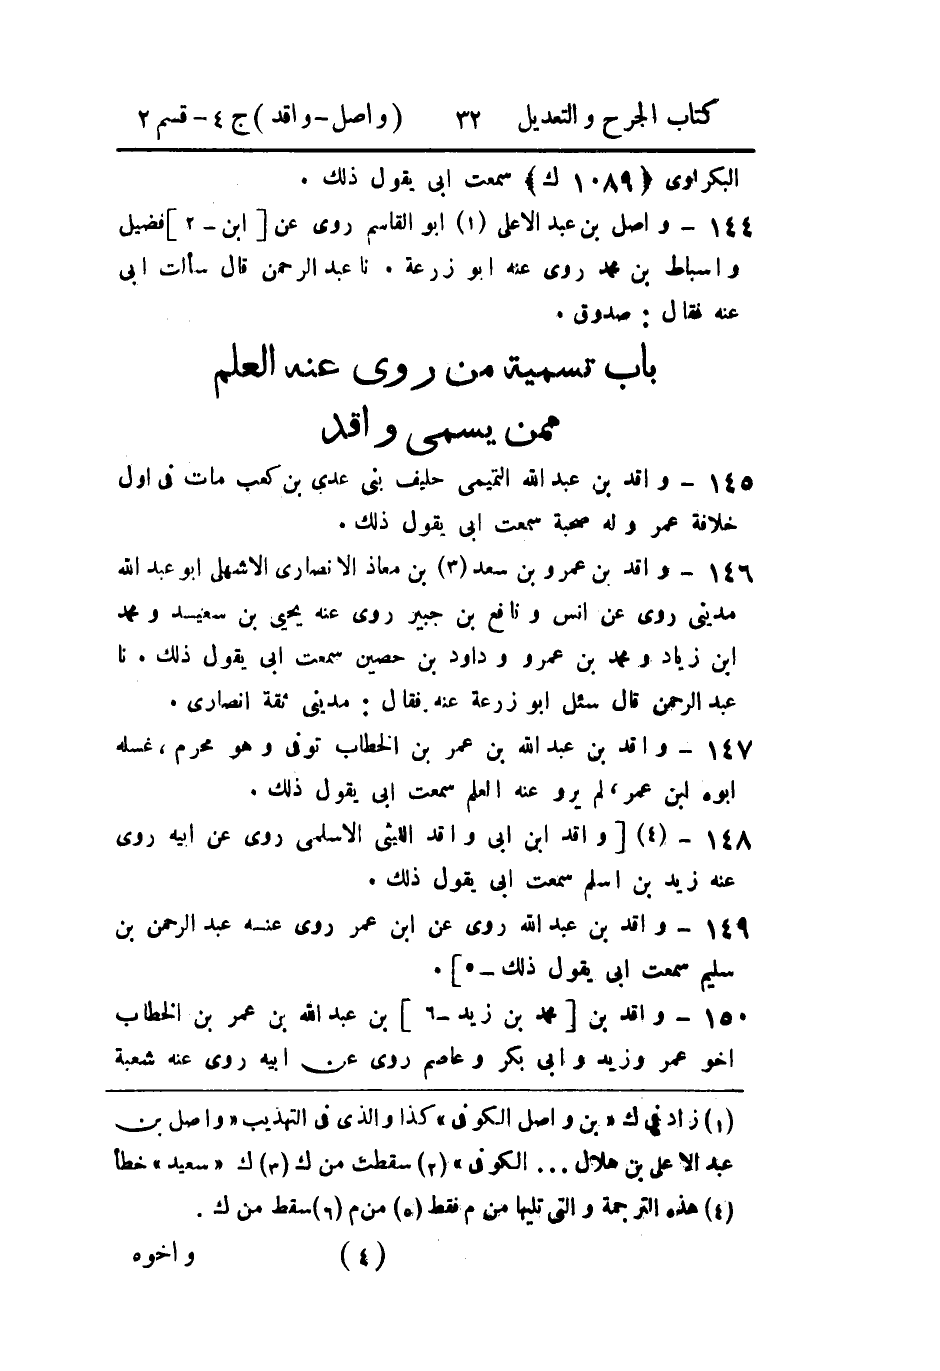 كتاب الجرح والتعديل ٣٢ (واصل-واقد) ج ٤ - قسم ٢
البكراوى {١٠٨٩ ك} سمعت ابى يقول ذلك .
١٤٤ - واصل بن عبد الاعلى (١) ابو القاسم روى عن [ ابن - ٢ ] فضيل
واسباط بن محمد روى عنه ابو زرعة . نا عبد الرحمن قال سألت ابى
عنه فقال : صدوق .
باب تسمية من روى عنه العلم
ممن يسمى واقد
١٤٥ - واقد بن عبد الله التميمى حليف بنى عدي بن كعب مات فى اول
خلافة عمر وله صحبة سمعت ابى يقول ذلك .
١٤٦ - واقد بن عمرو بن سعد (٣) بن معاذ الانصارى الاشهلى ابو عبد الله
مدينى روى عن انس ونافع بن جبير روى عنه يحيى بن سعيد ومحمد
ابن زياد ومحمد بن عمرو وداود بن حصين سمعت ابى يقول ذلك . نا
عبد الرحمن قال سئل ابو زرعة عنه . فقال : مدينى ثقة انصارى .
١٤٧ - واقد بن عبد الله بن عمر بن الخطاب توفى وهو محرم ، غسله
ابوه ابن عمر ، لم يرو عنه العلم سمعت ابى يقول ذلك .
١٤٨ - (٤) [ واقد ابن ابى واقد الليثى الاسلمى روى عن ابيه روى
عنه زيد بن اسلم سمعت ابى يقول ذلك .
١٤٩ - واقد بن عبد الله روى عن ابن عمر روى عنه عبد الرحمن بن
سليم سمعت ابى يقول ذلك - ٥ ] .
١٥٠ - واقد بن [ محمد بن زيد - ٦ ] بن عبد الله بن عمر بن الخطاب
اخو عمر وزيد وابى بكر وعاصم روى عن ابيه روى عنه شعبة
(١) زاد في ك «بن واصل الكوفى» كذا والذى فى التهذيب «واصل بن
عبد الاعلى بن هلال ... الكوفى» (٢) سقطت من ك (٣) ك «سعيد» خطأ
(٤) هذه الترجمة والتى تليها من م فقط (٥) من م (٦) سقط من ك .
(٤) واخوه